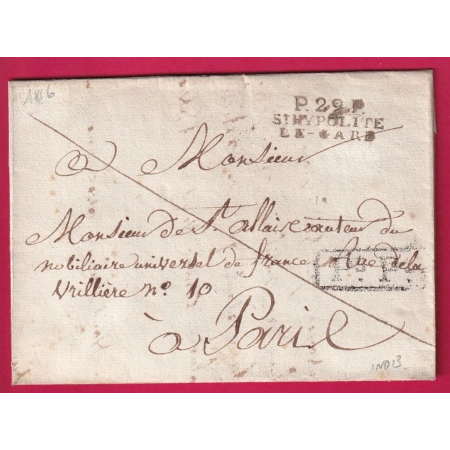 1816
P.29.P.
ST HYPOLITE
LE-GARD
a Monsieur
Monsieur de St allais auteur du
nobiliaire universel de france Rue de la
P.P.
Vrillière no. 10
à Paris
IND 13